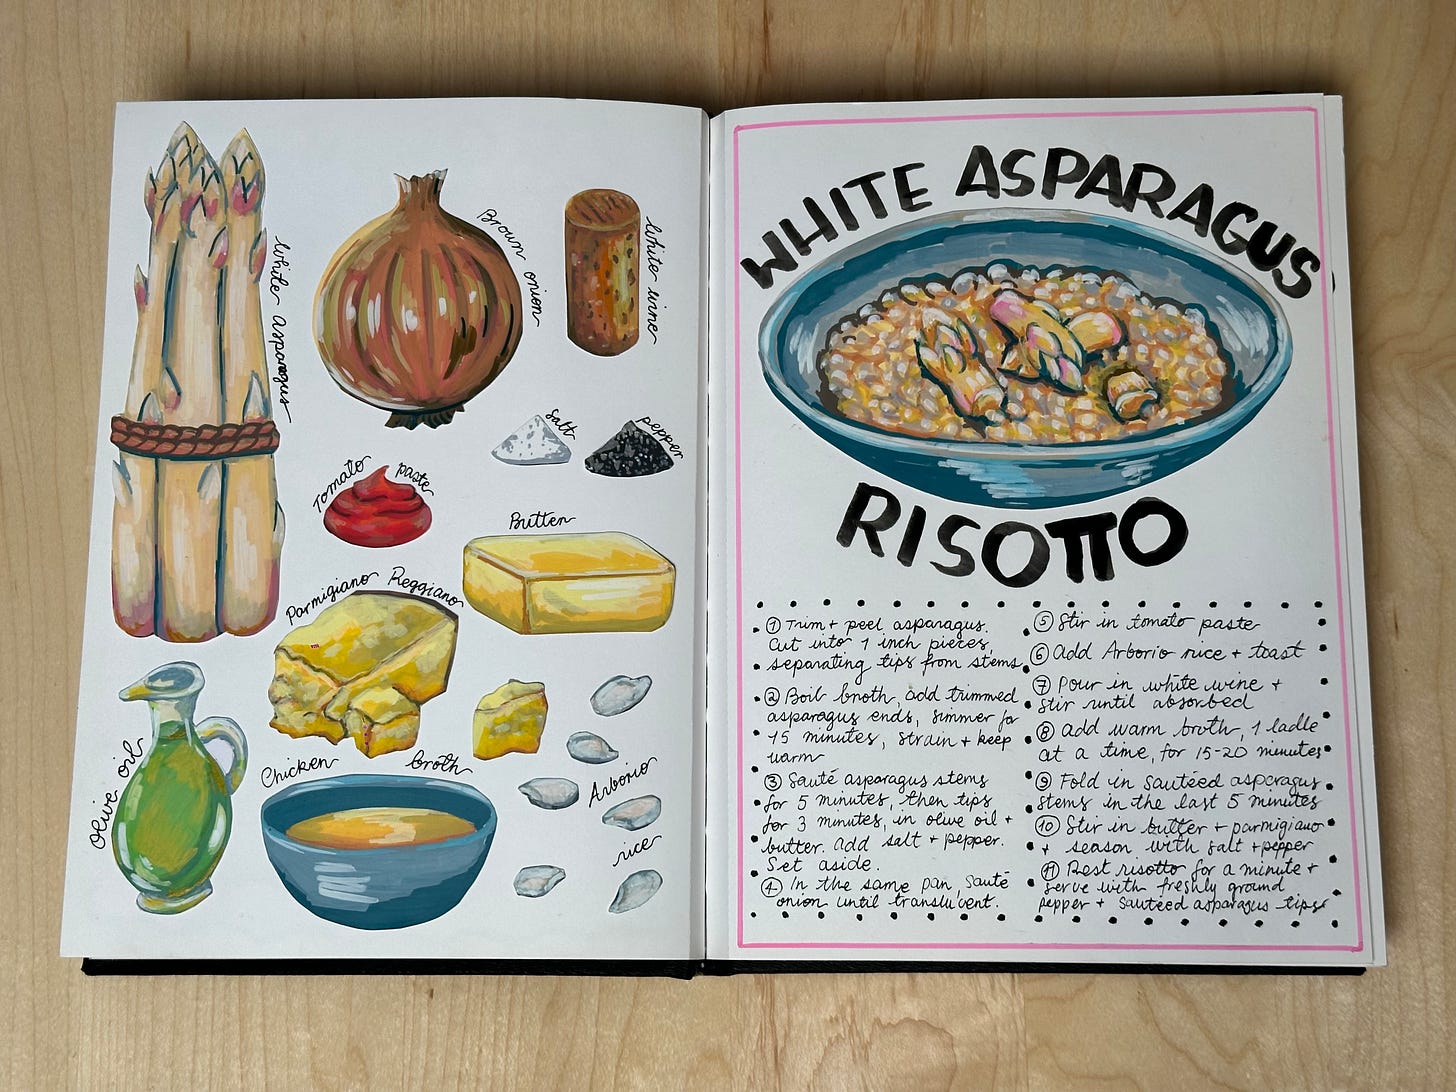 White asparagus
Brown onion
White wine
Salt
pepper
Tomato paste
Butter
Parmigiano Reggiano
Olive oil
Chicken broth
Arborio
rice
WHITE ASPARAGUS
RISOTTO
① Trim + peel asparagus.
Cut into 1 inch pieces,
separating tips from stems.
② Boil broth, add trimmed
asparagus ends, simmer for
15 minutes, strain + keep
warm
③ Sauté asparagus stems
for 5 minutes, then tips
for 3 minutes, in olive oil +
butter. add salt + pepper.
Set aside.
④ In the same pan, sauté
onion until translucent.
⑤ Stir in tomato paste
⑥ Add Arborio rice + toast
⑦ Pour in white wine +
stir until absorbed
⑧ add warm broth, 1 ladle
at a time, for 15-20 minutes
⑨ Fold in sautéed asparagus
stems in the last 5 minutes
⑩ Stir in butter + parmigiano
+ season with salt + pepper
⑪ Rest risotto for a minute +
serve with freshly ground
pepper + sautéed asparagus tips